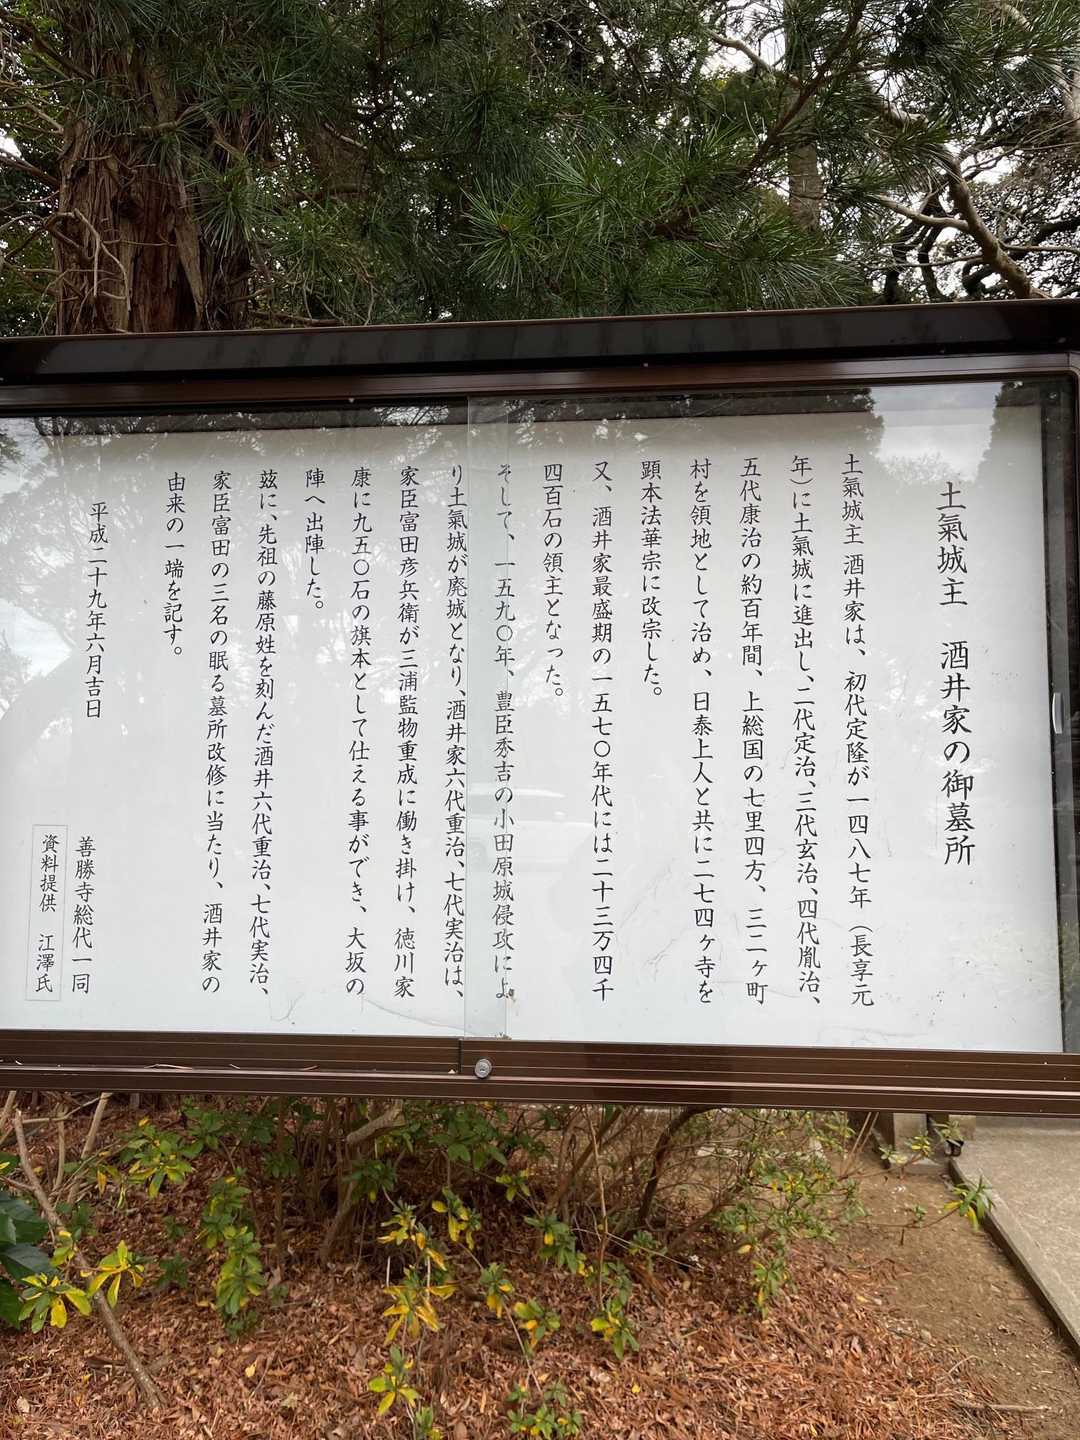 土氣城主　酒井家の御墓所
土氣城主 酒井家は、初代定隆が一四八七年（長享元
年）に土氣城に進出し、二代定治、三代玄治、四代胤治、
五代康治の約百年間、上総国の七里四方、三二ヶ町
村を領地として治め、日泰上人と共に二七四ヶ寺を
顕本法華宗に改宗した。
又、酒井家最盛期の一五七〇年代には二十三万四千
四百石の領主となった。
そして、一五九〇年、豊臣秀吉の小田原城侵攻によ
り土氣城が廃城となり、酒井家六代重治、七代実治は、
家臣富田彦兵衛が三浦監物重成に働き掛け、徳川家
康に九五〇石の旗本として仕える事ができ、大坂の
陣へ出陣した。
茲に、先祖の藤原姓を刻んだ酒井六代重治、七代実治、
家臣富田の三名の眠る墓所改修に当たり、酒井家の
由来の一端を記す。
平成二十九年六月吉日
善勝寺総代一同
資料提供　江澤氏